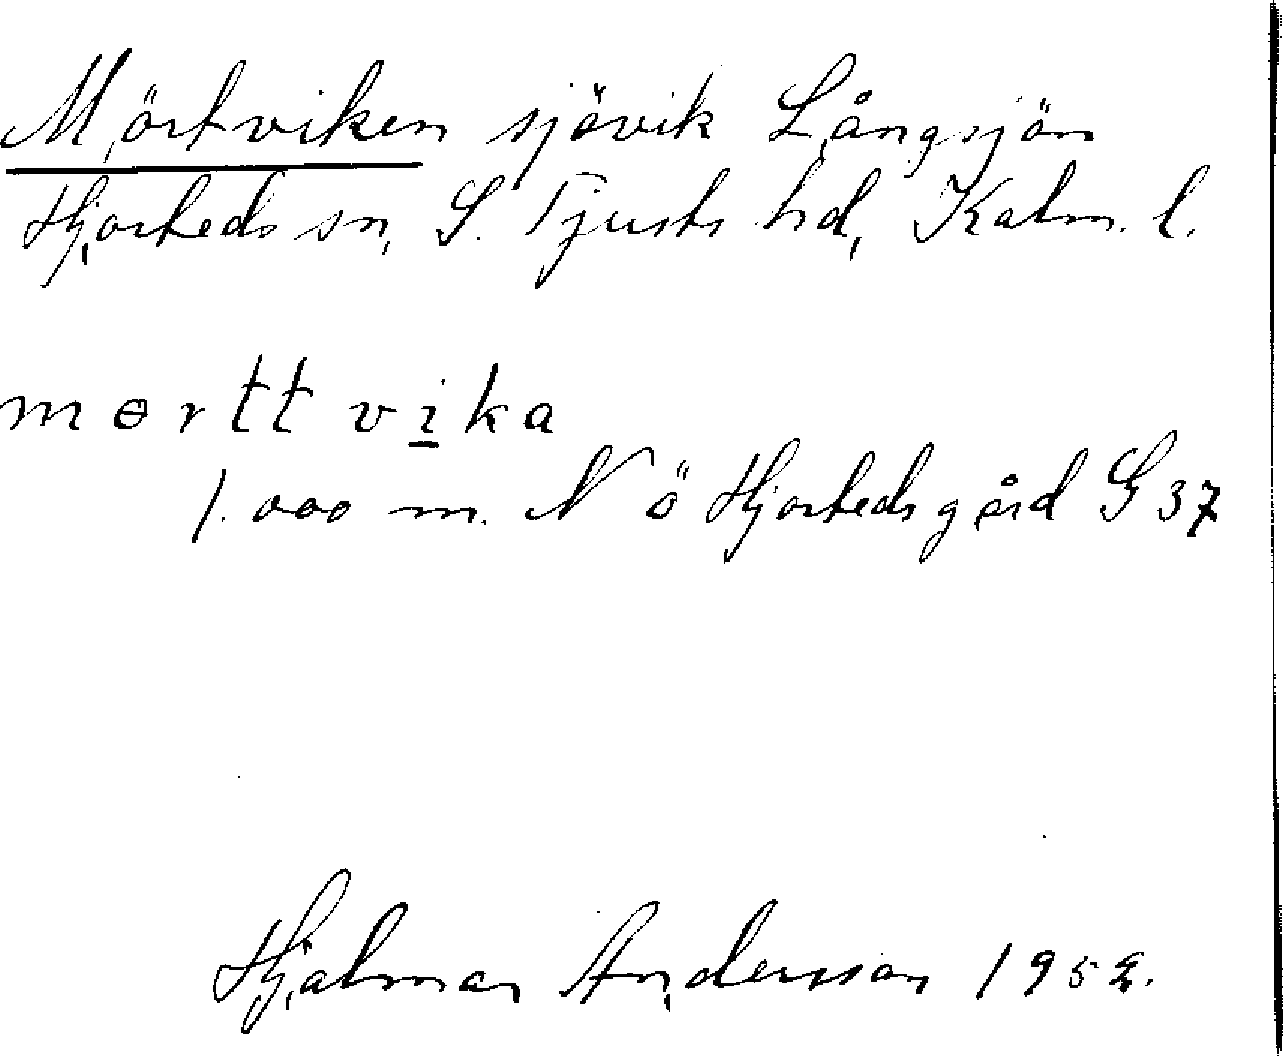 Mörtviken sjövik Långsjön
Hjorteds sn, S. Tjusts hd, Kalm. l.
mɵrtt vika
1.000 m. N ö Hjorteds gård G 37
Hjalmar Andersson 1952.